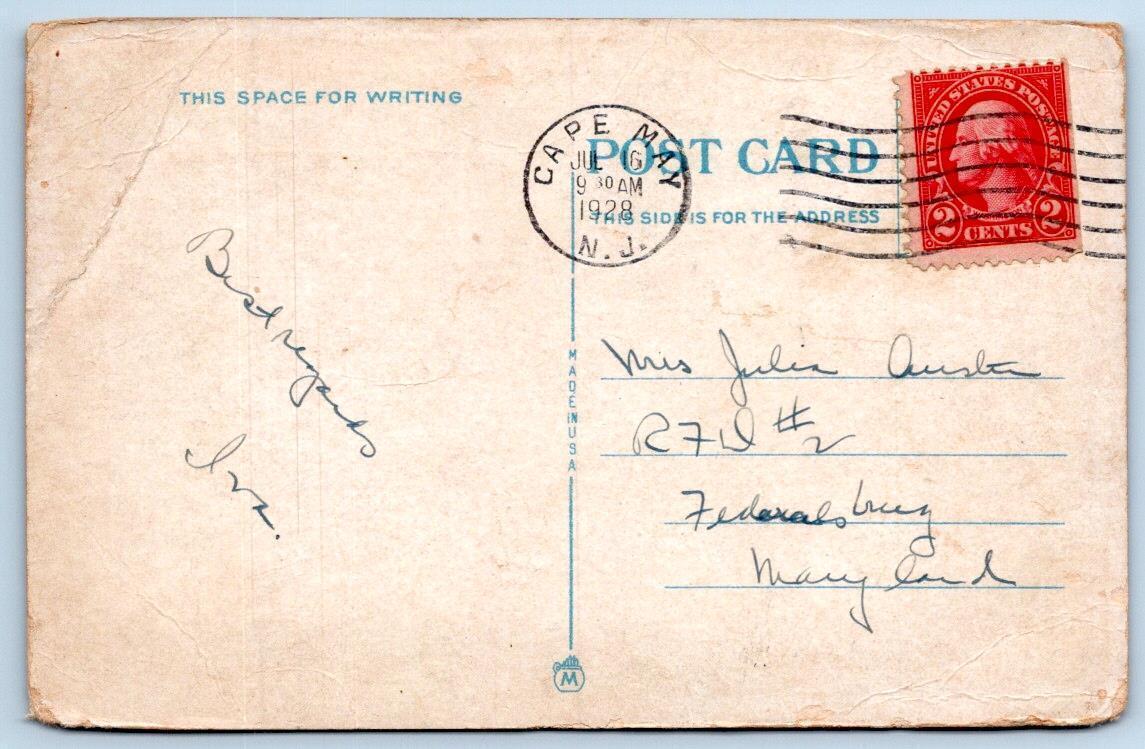 THIS SPACE FOR WRITING
Best regards
Iva.
CAPE MAY
JUL 16
9 30 AM
1928
N. J.
POST CARD
THIS SIDE IS FOR THE ADDRESS
UNITED STATES POSTAGE
2 CENTS 2
Mrs Julia Austin
RFD #2
Federalsburg
Maryland
MADE IN USA
M